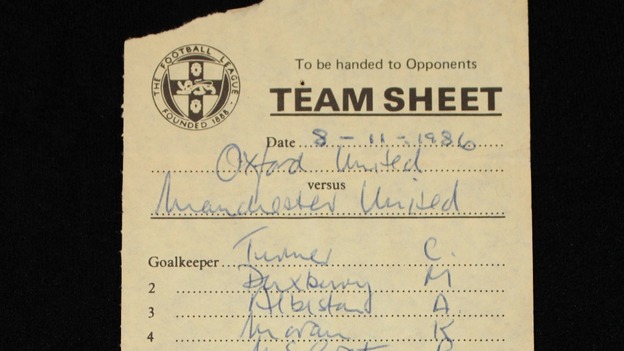 THE FOOTBALL LEAGUE
FOUNDED 1888
To be handed to Opponents
TEAM SHEET
Date 8-11-1986
Oxford United
versus
Manchester United
Goalkeeper Turner C.
2 Duxbury M
3 Albiston A.
4 Moran K